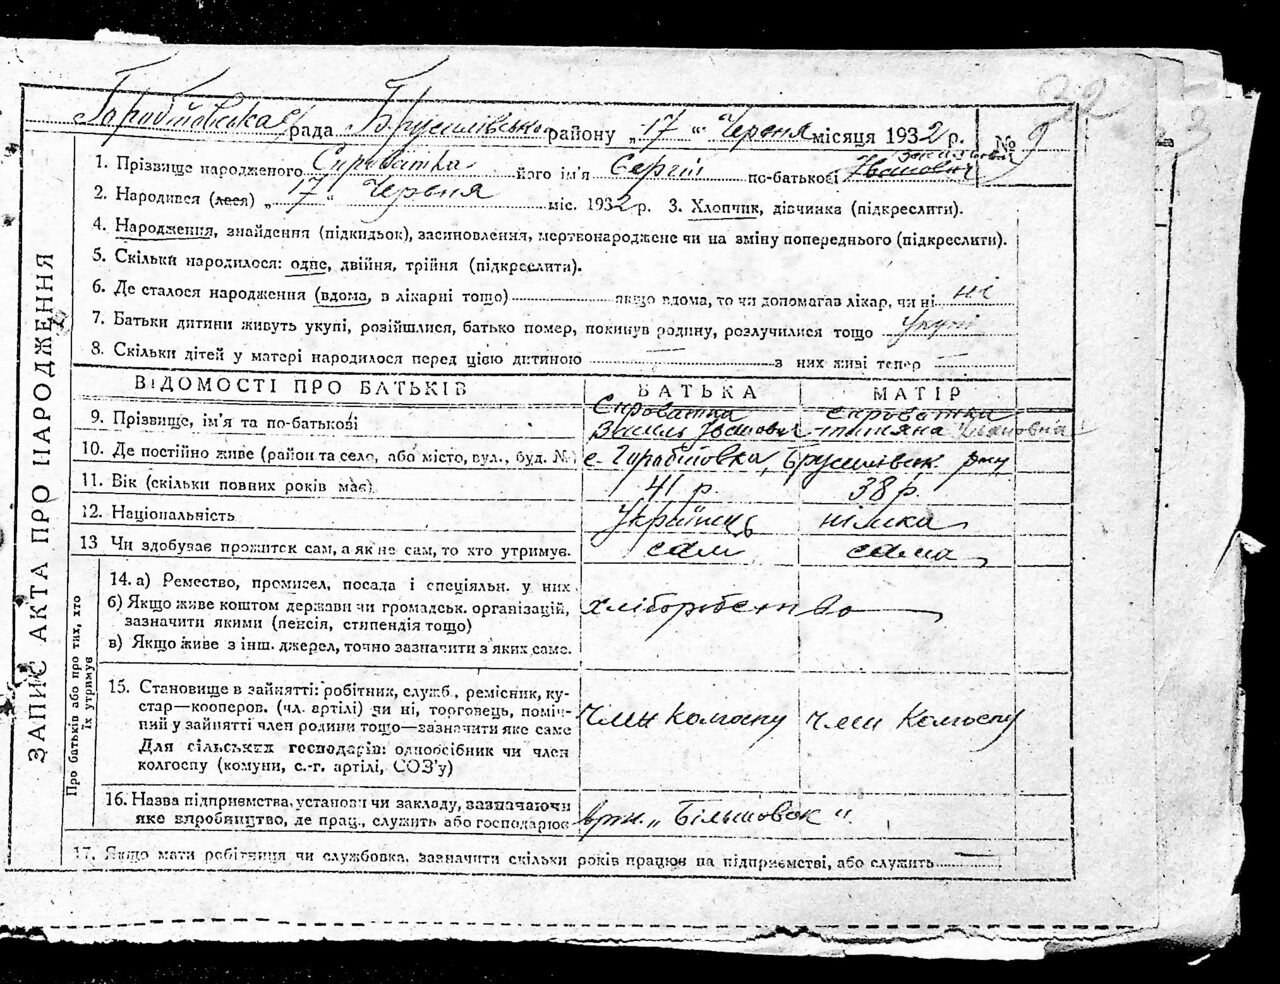 32
3
Гарабтовська с/рада Брусилівсько району „17“ Червня місяця 1932 р. № 9
1. Прізвище народженого Сироватка його ім'я Сергій по-батькові Іванович
2. Народився (леся) „17“ Червня міс. 1932 р. 3. Хлопчик, дівчинка (підкреслити).
4. Народження, знайдення (підкидьок), засиновлення, мертвонароджене чи на зміну попереднього (підкреслити).
5. Скільки народилося: одне, двійня, трійня (підкреслити).
6. Де сталося народження (вдома, в лікарні тощо) якщо вдома, то чи допомагав лікар, чи ні ні
7. Батьки дитини живуть укупі, розійшлися, батько помер, покинув родину, розлучилися тощо укупі
8. Скільки дітей у матері народилося перед цією дитиною — з них живі тепер —
ЗАПИС АКТА ПРО НАРОДЖЕННЯ
ВІДОМОСТІ ПРО БАТЬКІВ БАТЬКА МАТІР
9. Прізвище, ім'я та по-батькові Сироватка Василь Іванович Сироватка Тетяна Івановна
10. Де постійно живе (район та село, або місто, вул., буд. №) с. Гарабтовка, Брусилівськ. р-ну
11. Вік (скільки повних років має) 41 р. 38 р.
12. Національність Українець німка
13 Чи здобуває прожиток сам, а як не сам, то хто утримує. сам сама
Про батьків або про тих, хто їх утримує
14. а) Ремество, промисел, посада і спеціяльн. у них
б) Якщо живе коштом держави чи громадськ. організацій, хліборобство
зазначити якими (пенсія, стипендія тощо)
в) Якщо живе з інш. джерел, точно зазначити з яких саме.
15. Становище в зайнятті: робітник, служб., ремісник, ку-
стар—кооперов. (чл. артілі) чи ні, торговець, поміч-
ний у зайнятті член родини тощо—зазначити яке саме член колгоспу член колгоспу
Для сільських господарів: одноосібник чи член
колгоспу (комуни, с.-г. артілі, СОЗ'у)
16. Назва підприємства, установи чи закладу, зазначаючи
яке виробництво, де прац., служить або господарює арт. „Більшовик“
17. Якщо мати робітниця чи службовка, зазначити скільки років працює на підприємстві, або служить —